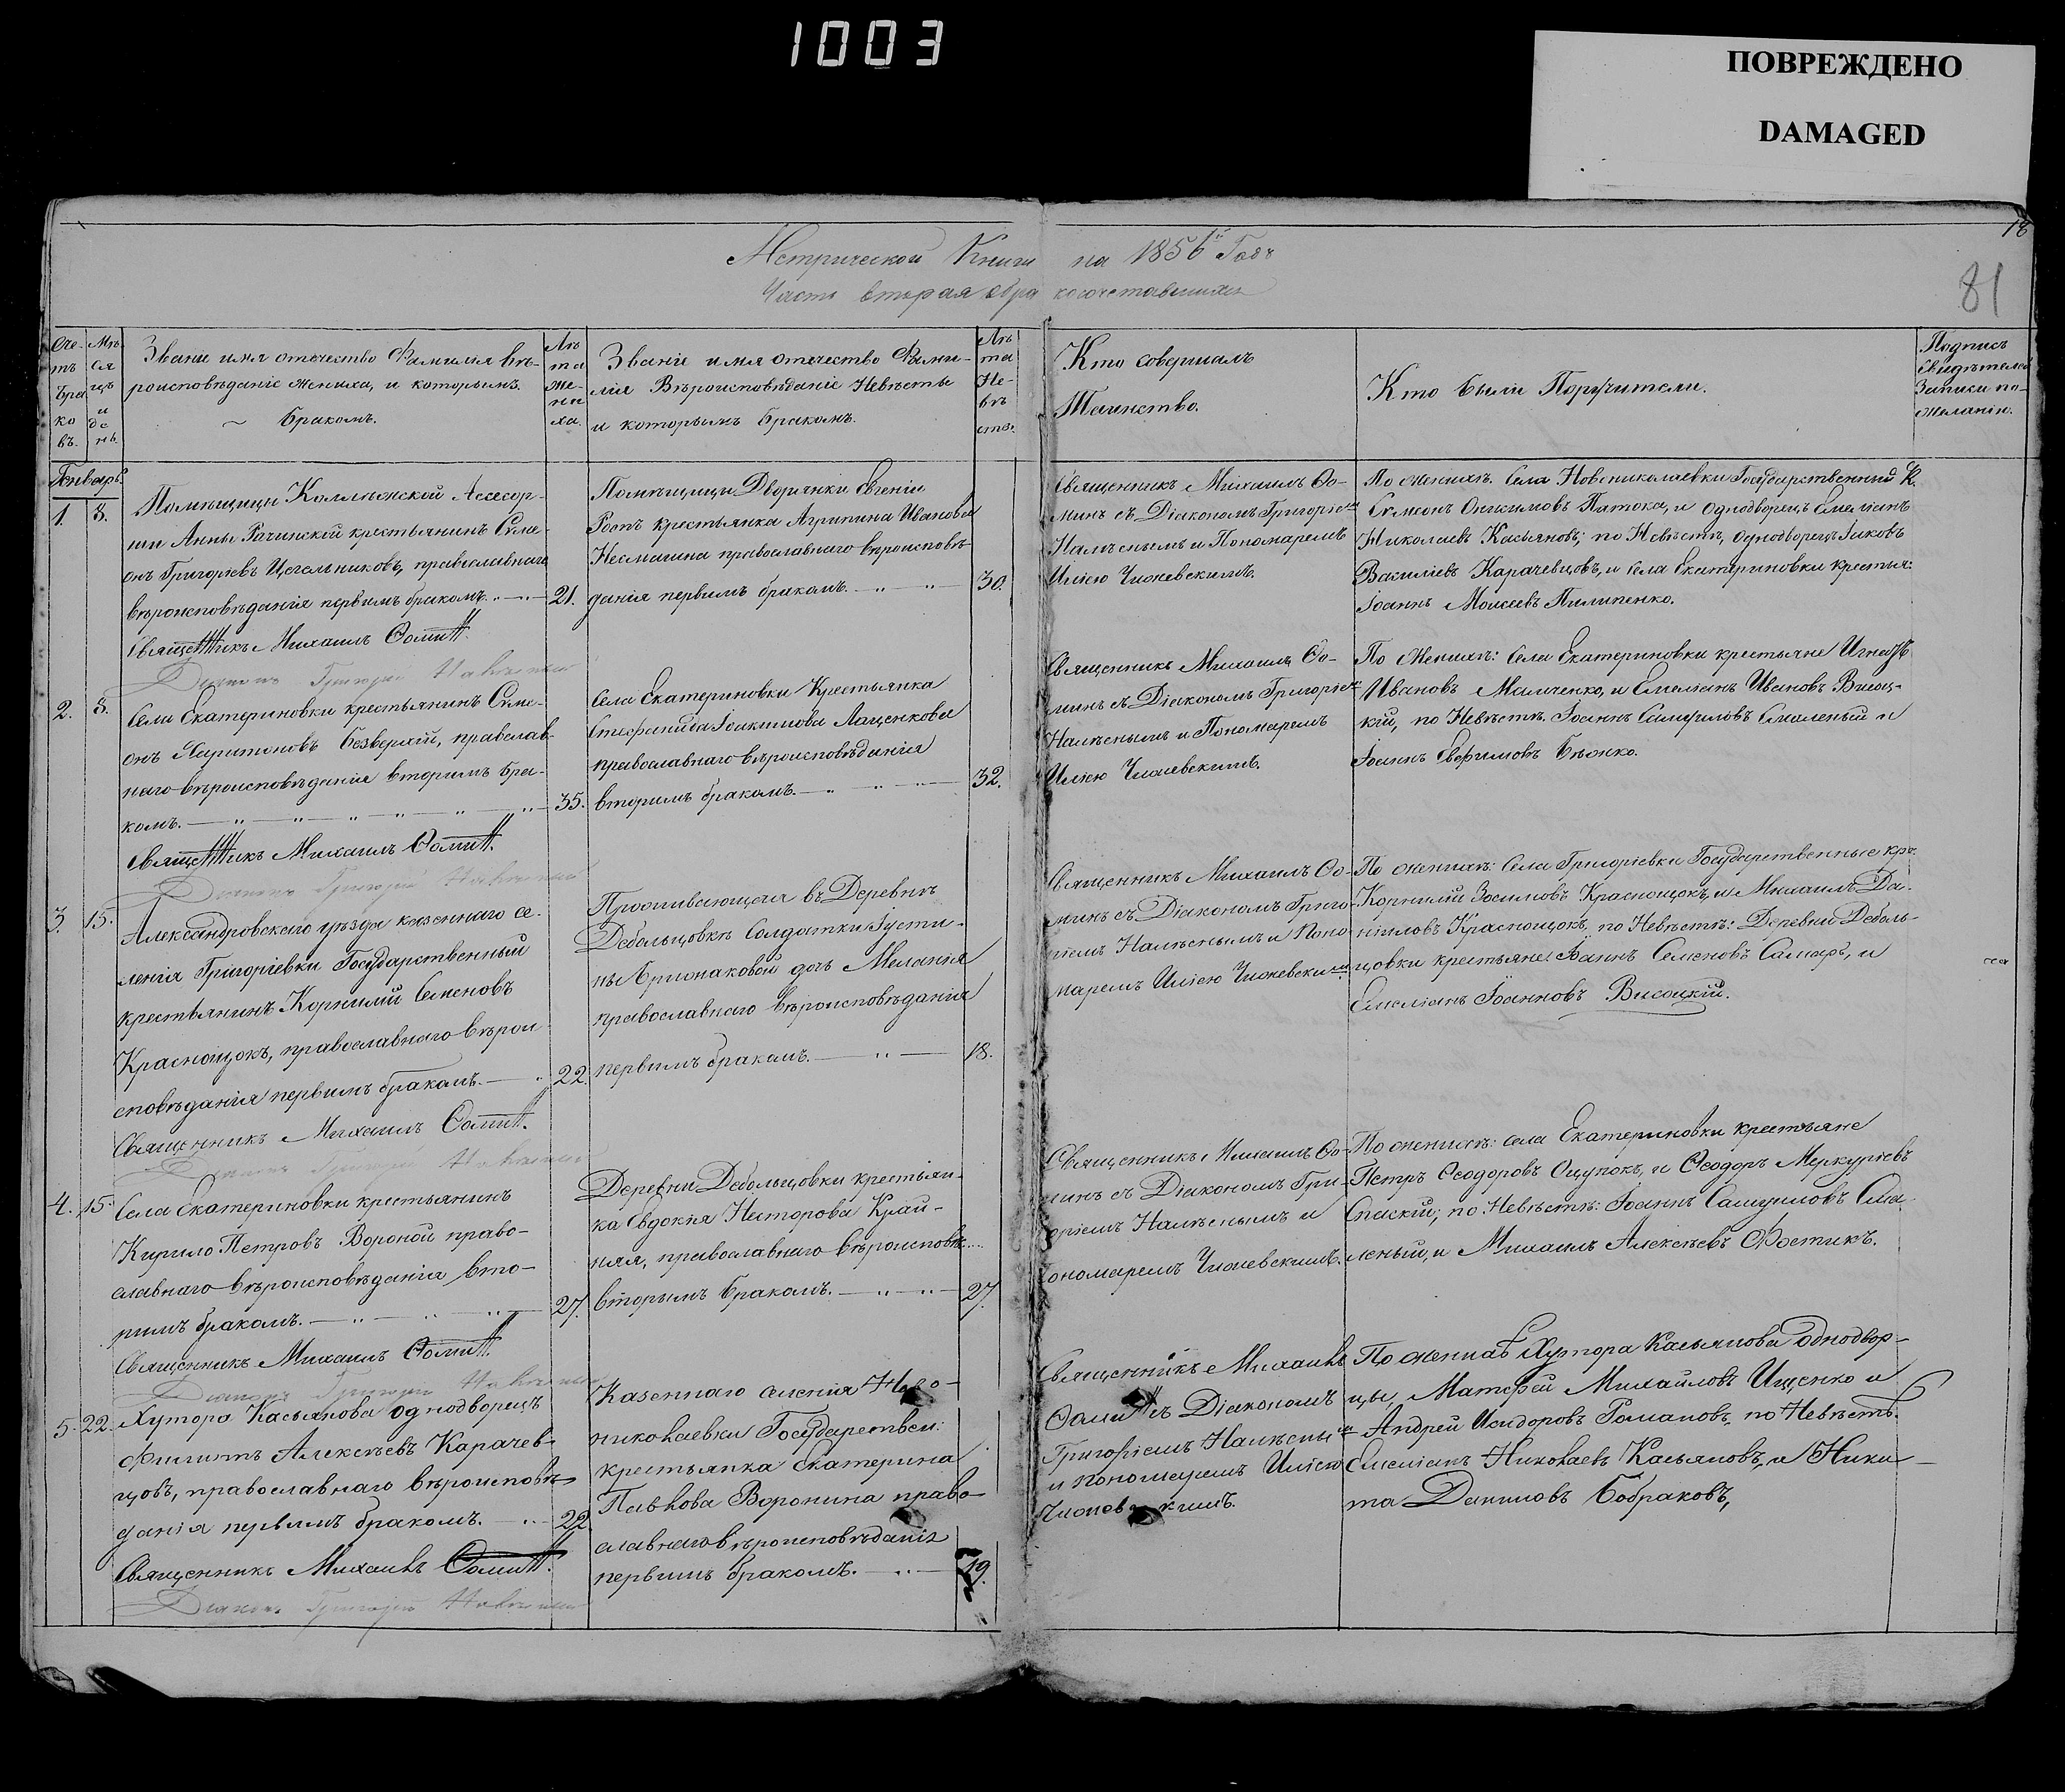 1003
ПОВРЕЖДЕНО
DAMAGED
18
81
Метрической Книги на 1856й Годъ
Часть вторая о бракосочетавшихся
Сче-
тъ
бра
ко
въ.
Мѣ-
ся
цъ
и
де
нь.
Звание имя отечество Фамилия вѣ-
роисповѣданіе жениха, и которымъ
бракомъ.
Лѣ
та
же-
ни
ха.
Званіе имя отечество Фами-
лия Вѣроисповѣданіе Невѣсты
и которымъ бракомъ.
Лѣ
та
Не-
вѣ
сты.
Кто совершалъ
Таинство.
Кто были Поручители.
Подпись
свидѣтелей
Записи по-
желанію.
Генварь.
1. 8.
Помѣщицы Коллежской Ассесор-
ши Анны Рачинской крестьянинъ Симе-
онъ Григоріевъ Цегельниковъ, православнаго
вѣроисповѣданія первымъ бракомъ. 21.
Священникъ Михаилъ Ѳоминъ.
Помѣщицы Дворянки Евгеніи
Ротъ крестьянка Агрипина Иванова
Несмашна православнаго вѣроисповѣ-
данія первымъ бракомъ. 30.
Священникъ Михаилъ Ѳо-
минъ съ Діакономъ Григоріемъ
Налѣснымъ и Пономаремъ
Иліею Чижевскимъ.
По женихѣ. Села Новониколаевки Государственный К.
Симеонъ Онисимовъ Пятока, и однодворецъ Емеліанъ
Николаевъ Касьяновъ; по Невѣстѣ, однодворецъ Іяковъ
Василіевъ Карачевцовъ, и села Екатериновки крестья:
Іоаннъ Моисеевъ Пилипенко.
Діаконъ Григорій
2. 8.
Села Екатериновки крестьянинъ Симе-
онъ Харитоновъ Безверхій, православ-
наго вѣроисповѣданія вторымъ бра-
комъ. 35.
Священникъ Михаилъ Ѳоминъ.
Села Екатериновки Крестьянка
Стефанида Іоакимова Лащенкова
православнаго вѣроисповѣданія
вторымъ бракомъ. 32.
Священникъ Михаилъ Ѳо-
минъ съ Діакономъ Григоріемъ
Налѣснымъ и Пономаремъ
Иліею Чижевскимъ.
По женихѣ: Села Екатериновки крестьяне Игнатъ
Ивановъ Маличенко, и Емеліанъ Ивановъ Висоц-
кій, по Невѣстѣ. Іоаннъ Самуиловъ Смоленый и
Іоаннъ Евфимовъ Бѣжко.
Діаконъ Григорій
3. 15.
Александровскаго уѣзда казеннаго се-
ленія Григоріевки Государственный
крестьянинъ Корнилій Семеновъ
Краснощокъ, православнаго вѣрои-
сповѣданія первымъ бракомъ. 22.
Священникъ Михаилъ Ѳоминъ.
Проживающая въ Деревнѣ
Дебальцовкѣ Солдатки Іусти-
ны дочь Меланія
православнаго вѣроисповѣданія
первымъ бракомъ. 18.
Священникъ Михаилъ Ѳо-
минъ съ Діакономъ Григо-
ріемъ Налѣснымъ и Поно-
маремъ Иліею Чижевскимъ
По женихѣ: Села Григоріевки Государственные кр:
Корнилій Зосимовъ Краснощокъ, и Михаилъ Да-
ниловъ Краснощокъ, по Невѣстѣ: Деревни Дебаль-
цовки крестьяне Іоаннъ Семеновъ Самарь, и
Емеліанъ Іоанновъ Висоцкій.
Діаконъ Григорій
4. 15.
Села Екатериновки крестьянинъ
Кирило Петровъ Вороной право-
славнаго вѣроисповѣданія вто-
рымъ бракомъ. 27.
Священникъ Михаилъ Ѳоминъ.
Деревни Дебальцовки крестьян-
ка Евдокія Никторова Край-
няя, православнаго вѣроисповѣ.
вторымъ бракомъ. 27.
Священникъ Михаилъ Ѳо-
минъ съ Діакономъ Гри-
оріемъ Налѣснымъ и
ономаремъ Чижевскимъ.
По женихѣ: села Екатериновки крестьяне
Петръ Ѳеодоровъ Оцупокъ, и Ѳеодоръ Меркуріевъ
Спаскій; по Невѣстѣ: Іоаннъ Самуиловъ Смо-
леный, и Михаилъ Алексѣевъ Фостикъ.
Діаконъ Григорій
5. 22.
Хутора Касьянова однодворецъ
Филипъ Алексѣевъ Карачев-
цовъ, православнаго вѣроисповѣ-
данія первымъ бракомъ. 22
Священникъ Михаилъ Ѳоминъ.
Казеннаго селенія Ново-
николаевки Государствен:
крестьянка Екатерина
Павлова Воронина право-
славнаго вѣроисповѣданія
первымъ бракомъ. 19.
Священникъ Михаилъ
Ѳоминъ съ Діакономъ
Григоріемъ Налѣснымъ
и пономаремъ Иліею
Чижевскимъ.
По женихѣ Хутора Касьянова однодвор-
цы, Матфей Михайловъ Ищенко и
Андрей Исидоровъ Романовъ, по Невѣстѣ.
Емеліанъ Николаевъ Касьяновъ, и Ники-
та Даниловъ Бобраковъ,
Діаконъ Григорій